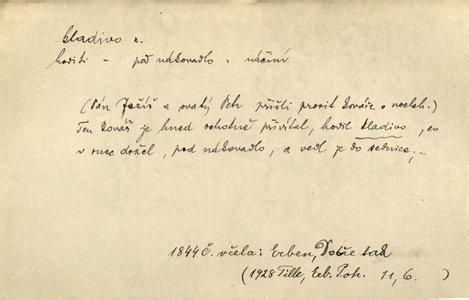 kladivo n.
hoditi – pod nákovadlo – náčiní
(Pán Ježíš a svatý Petr přišli prosit kováře o nocleh.)
Ten kovář je hned ochotně přivítal, hodil kladivo, co
v ruce držel, pod nákovadlo, a vedl je do sednice;...
1844 Č. včela: Erben, Dobře tak
(1928 Tille, Erb. Poh. 11, 6. )